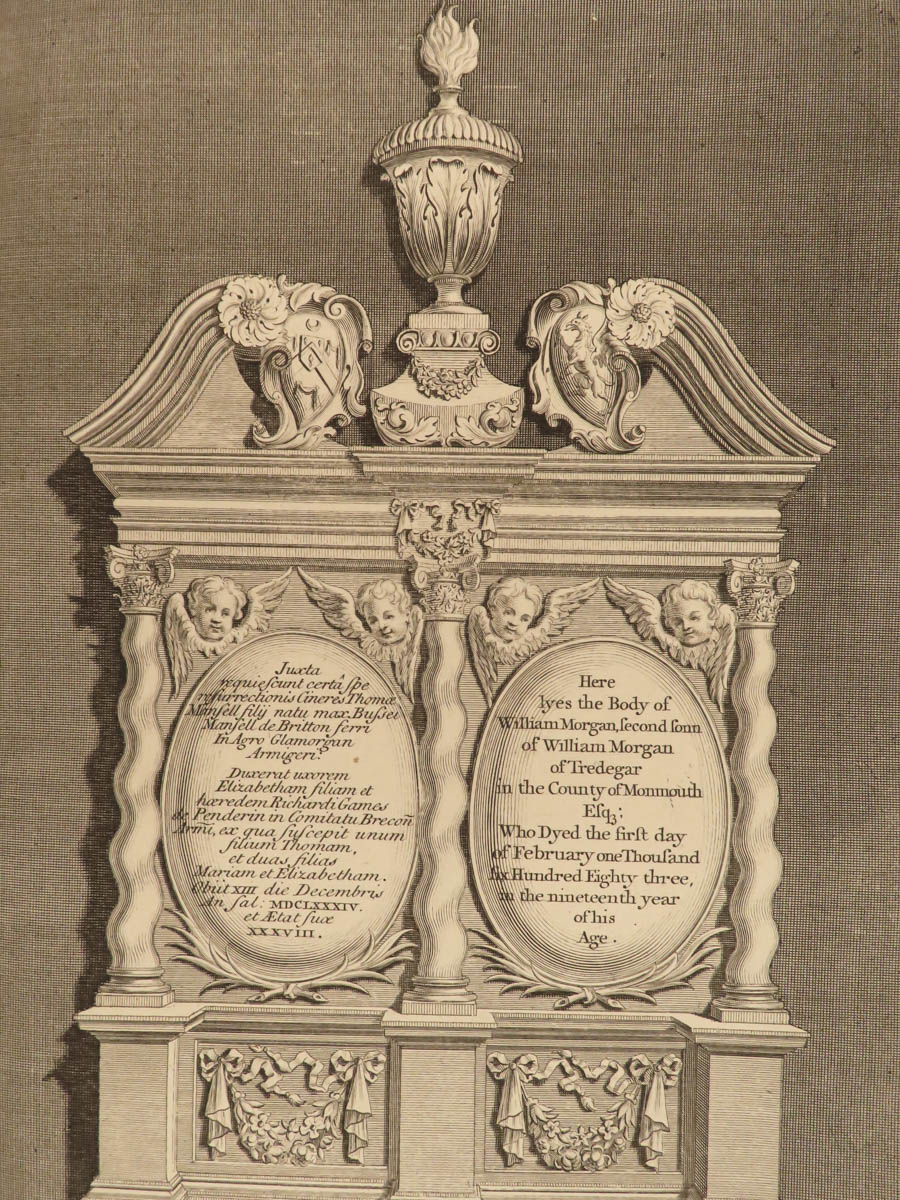 Iuxta
requieſcunt certâ ſpe
reſurrectionis Cineres Thomæ
Manſell filij natu max. Buſsei
Manſell de Britton ferri
In Agro Glamorgan
Armigeri.
Duxerat uxorem
Elizabetham filiam et
hæredem Richardi Games
de Penderin in Comitatu Brecoñ
Arm̃i, ex qua ſuſcepit unum
filium Thomam,
et duas filias
Mariam et Elizabetham.
Obiit XIII die Decembris
An ſal: MDCLXXXIV.
et Ætat ſuæ
XXXVIII.
Here
lyes the Body of
William Morgan, ſecond ſonn
of William Morgan
of Tredegar
in the County of Monmouth
Eſqꝫ;
Who Dyed the firſt day
of February one Thouſand
ſix Hundred Eighty three,
in the nineteenth year
of his
Age.